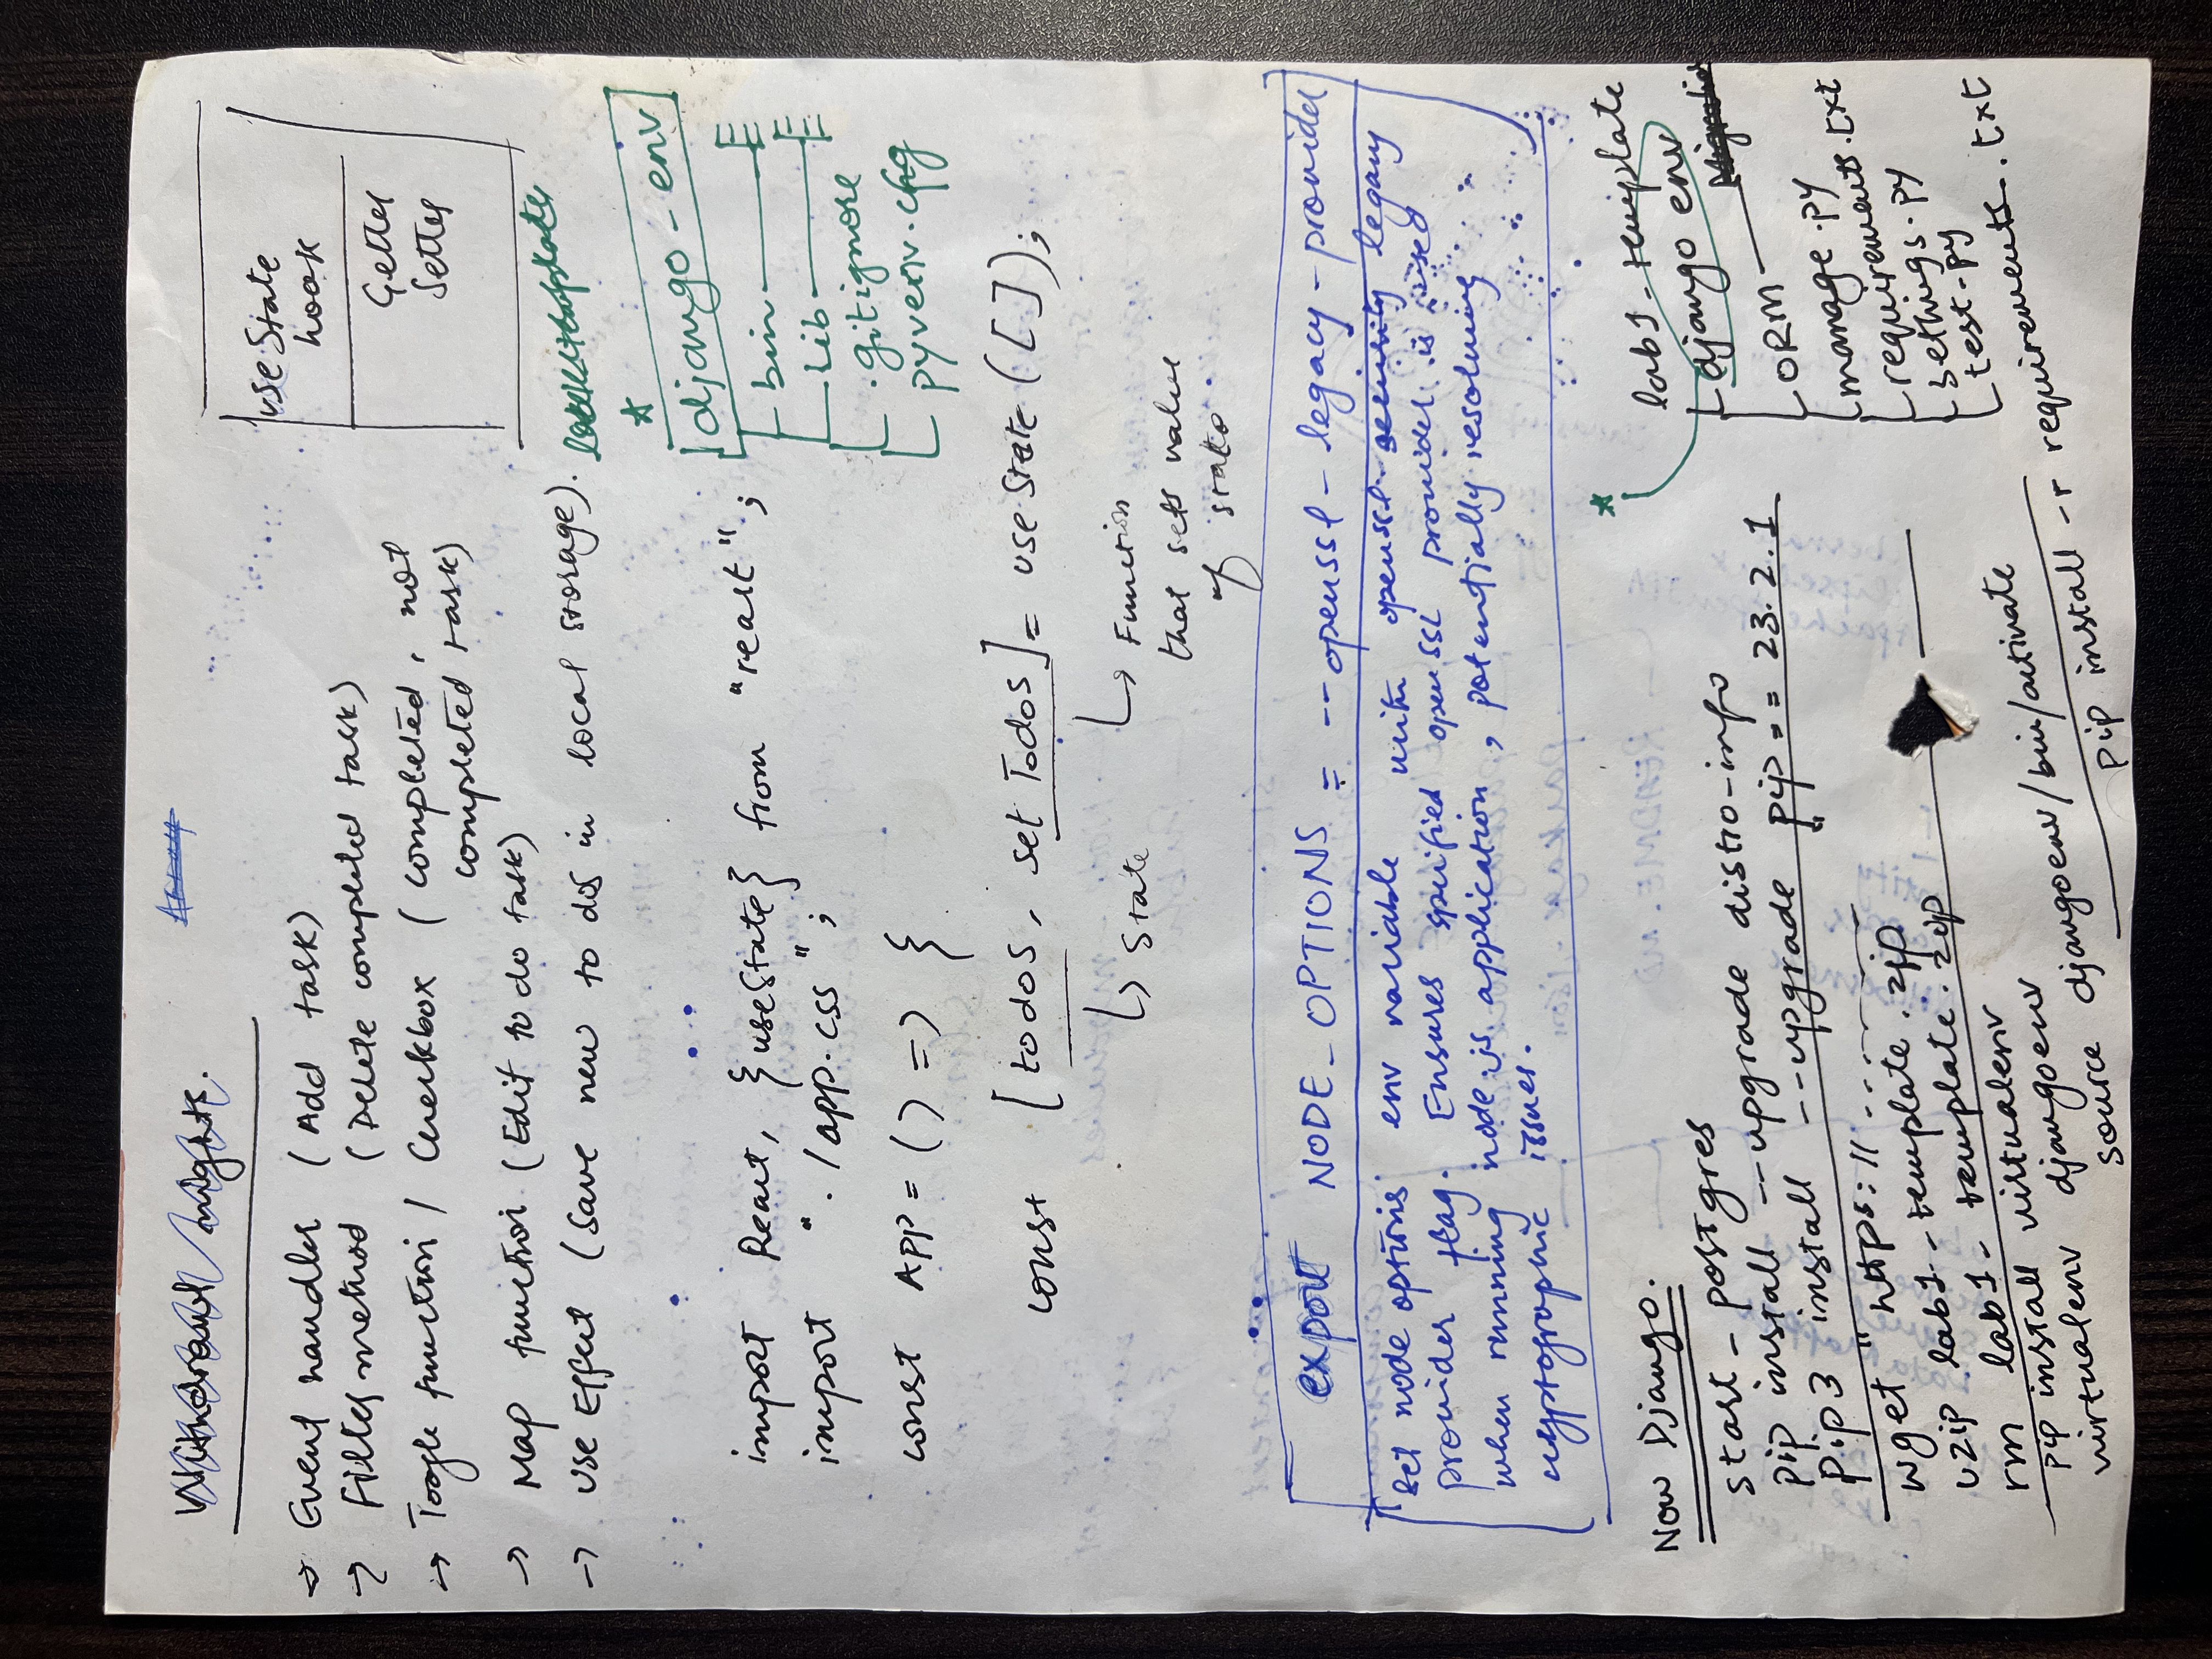 useState
hook
Getter
Setter
→ Event handler (Add task)
→ Filter method (Delete completed task)
→ Toogle function / Checkbox (completed, not
completed task)
→ Map function (Edit to do task)
→ use Effect (Save new to dos in local storage).
*
django-env
bin
Lib
.gitignore
pyvenv.cfg
import React, {useState} from "react";
import "./app.css";
const App = () => {
const [todos, set Todos] = useState([]);
↳ state
↳ Function
that sets value
of state
export NODE_OPTIONS = --openssl-legacy-provider
Set node options env variable with openssl legacy
provider flag. Ensures specified openssl provider is used
when running node js application, potentially resolving
cryptographic issues.
Now Django.
start - postgres
pip install --upgrade distro-info
pip3 install --upgrade pip==23.2.1
wget "https://
uzip lab1-template.zip
rm lab1-template.zip
pip install virtualenv
virtualenv djangoenv
source djangoenv/bin/activate
pip install -r requirements.txt
*
lab1-template
django env
ORM
manage.py
requirements.txt
settings.py
test.py